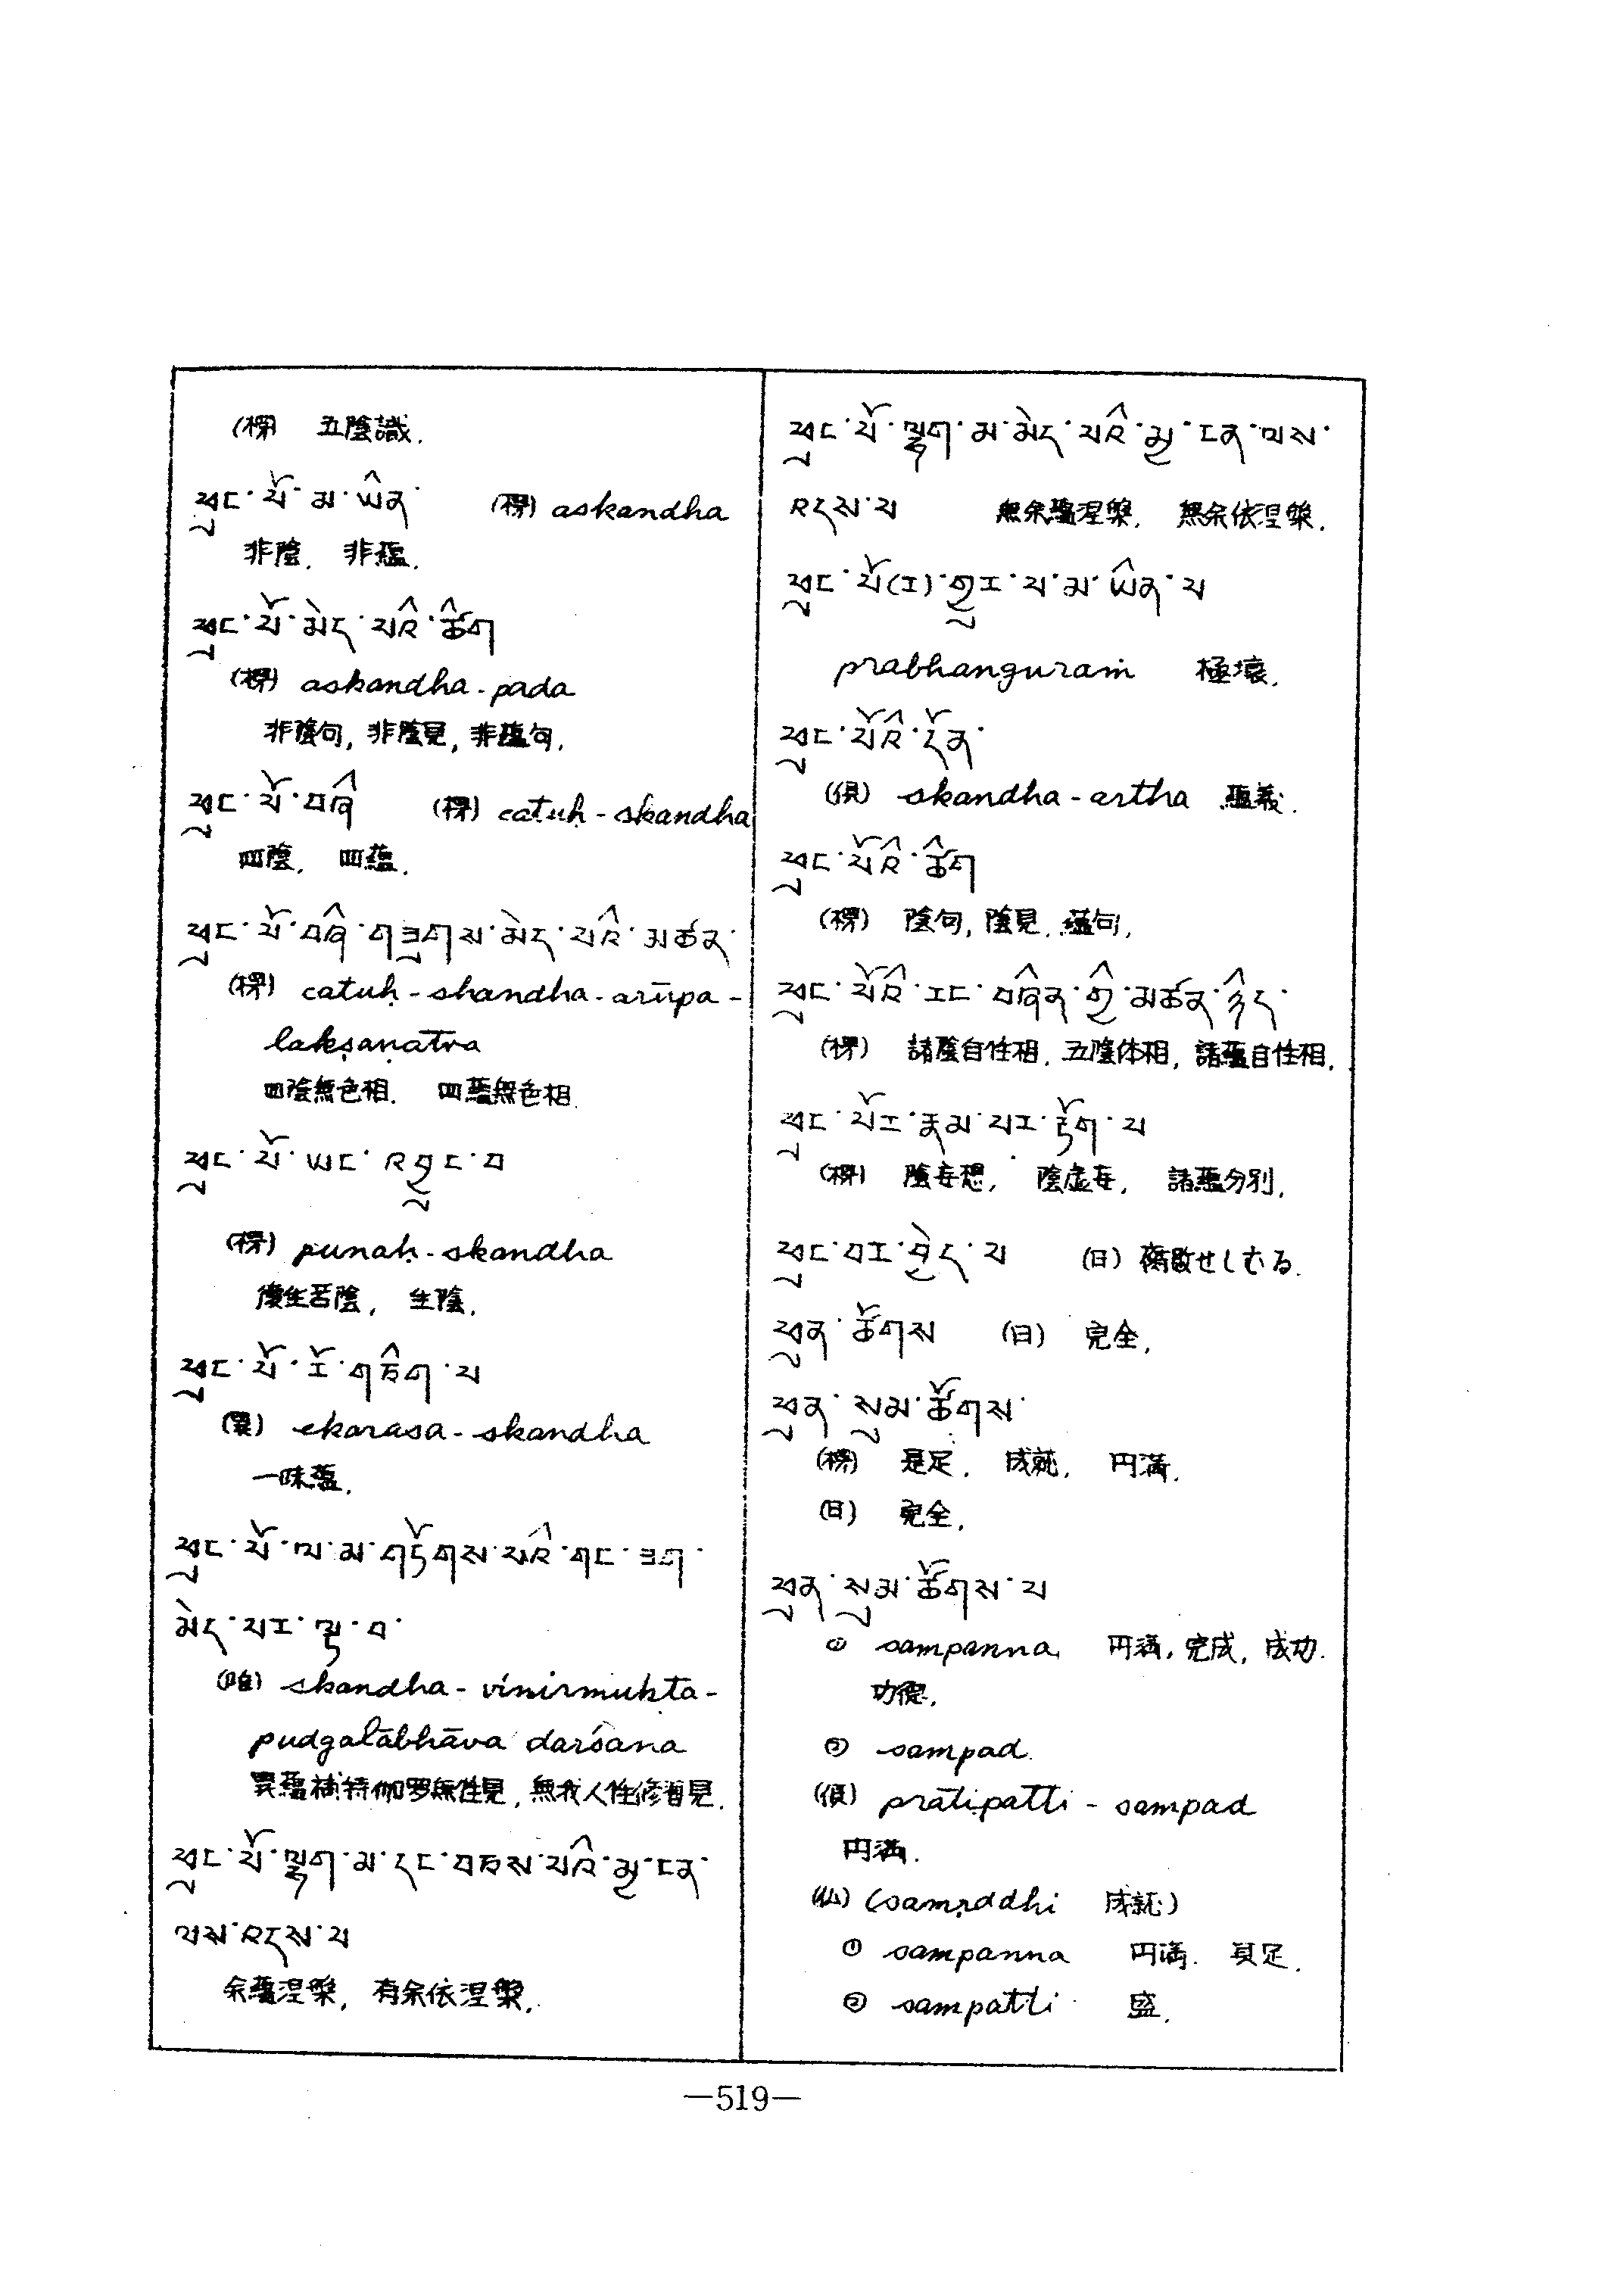 (楞) 五陰識.
ཕུང་པོ་མ་ཡིན་ (楞) askandha
非陰. 非蘊.
ཕུང་པོ་མེད་པའི་ཚིག
(楞) askandha-pada
非陰句, 非陰見, 非蘊句.
ཕུང་པོ་བཞི (楞) catuḥ-skandha
四陰. 四蘊.
ཕུང་པོ་བཞི་གཟུགས་མེད་པའི་མཚན་
(楞) catuḥ-skandha-arūpa-
lakṣaṇatra
四陰無色相. 四蘊無色相.
ཕུང་པོ་ཡང་འབྱུང་བ
(楞) punaḥ-skandha
後生苦陰, 生陰.
ཕུང་པོ་རོ་གཅིག་པ
(異) ekarasa-skandha
一味蘊.
ཕུང་པོ་ལ་མ་གཏོགས་པའི་གང་ཟག་
མེད་པར་ལྟ་བ་
(唯) skandha-vinirmukta-
pudgalābhāva darśana
異蘊補特伽罗無性見, 無我人性修習見.
ཕུང་པོ་ལྷག་མ་དང་བཅས་པའི་མྱ་ངན་
ལས་འདས་པ
余蘊涅槃, 有余依涅槃.
ཕུང་པོ་ལྷག་མ་མེད་པའི་མྱ་ངན་ལས་
འདས་པ 無余蘊涅槃. 無余依涅槃.
ཕུང་པོ(ར)་གྱུར་པ་མ་ཡིན་པ
prabhanguraṁ 極壊.
ཕུང་པོའི་དོན་
(俱) skandha-artha 蘊義.
ཕུང་པོའི་ཚིག
(楞) 陰句, 陰見. 蘊句.
ཕུང་པོའི་རང་བཞིན་གྱི་མཚན་ཉིད་
(楞) 諸陰自性相. 五陰体相, 諸蘊自性相.
ཕུང་པོར་རྣམ་པར་རྟོག་པ
(楞) 陰妄想, 陰虚妄, 諸蘊分別.
ཕུང་བར་བྱེད་པ (日) 腐敗せしむる.
ཕུན་ཚོགས (日) 完全.
ཕུན་སུམ་ཚོགས་
(楞) 是足. 成就. 円満.
(日) 完全.
ཕུན་སུམ་ཚོགས་པ
① sampanna, 円満, 完成, 成功.
功徳.
② sampad.
(俱) prātipatti-sampad
円満.
(仏) (samṛddhi 成就)
① sampanna 円満. 具足.
② sampatti 盛.
—519—